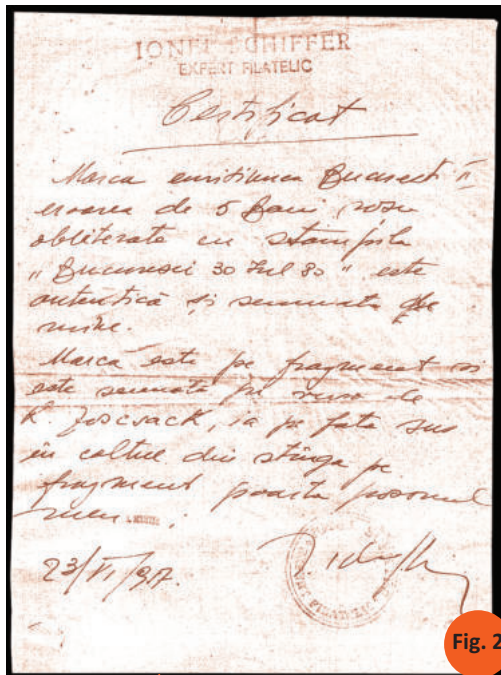 IONEL SCHIFFER
EXPERT FILATELIC
Certificat
Marca emisiunea Bucuresti II
eroarea de 5 Bani rosu
obliterata cu stampila
"Bucuresci 30 Iul 80" este
autentică și semnata de
mine.
Marca este pe fragment si
este semnata pe verso de
K. , ia pe fata sus
in coltul din stînga pe
fragment poarta
meu.
23/VI/97.
Fig. 2